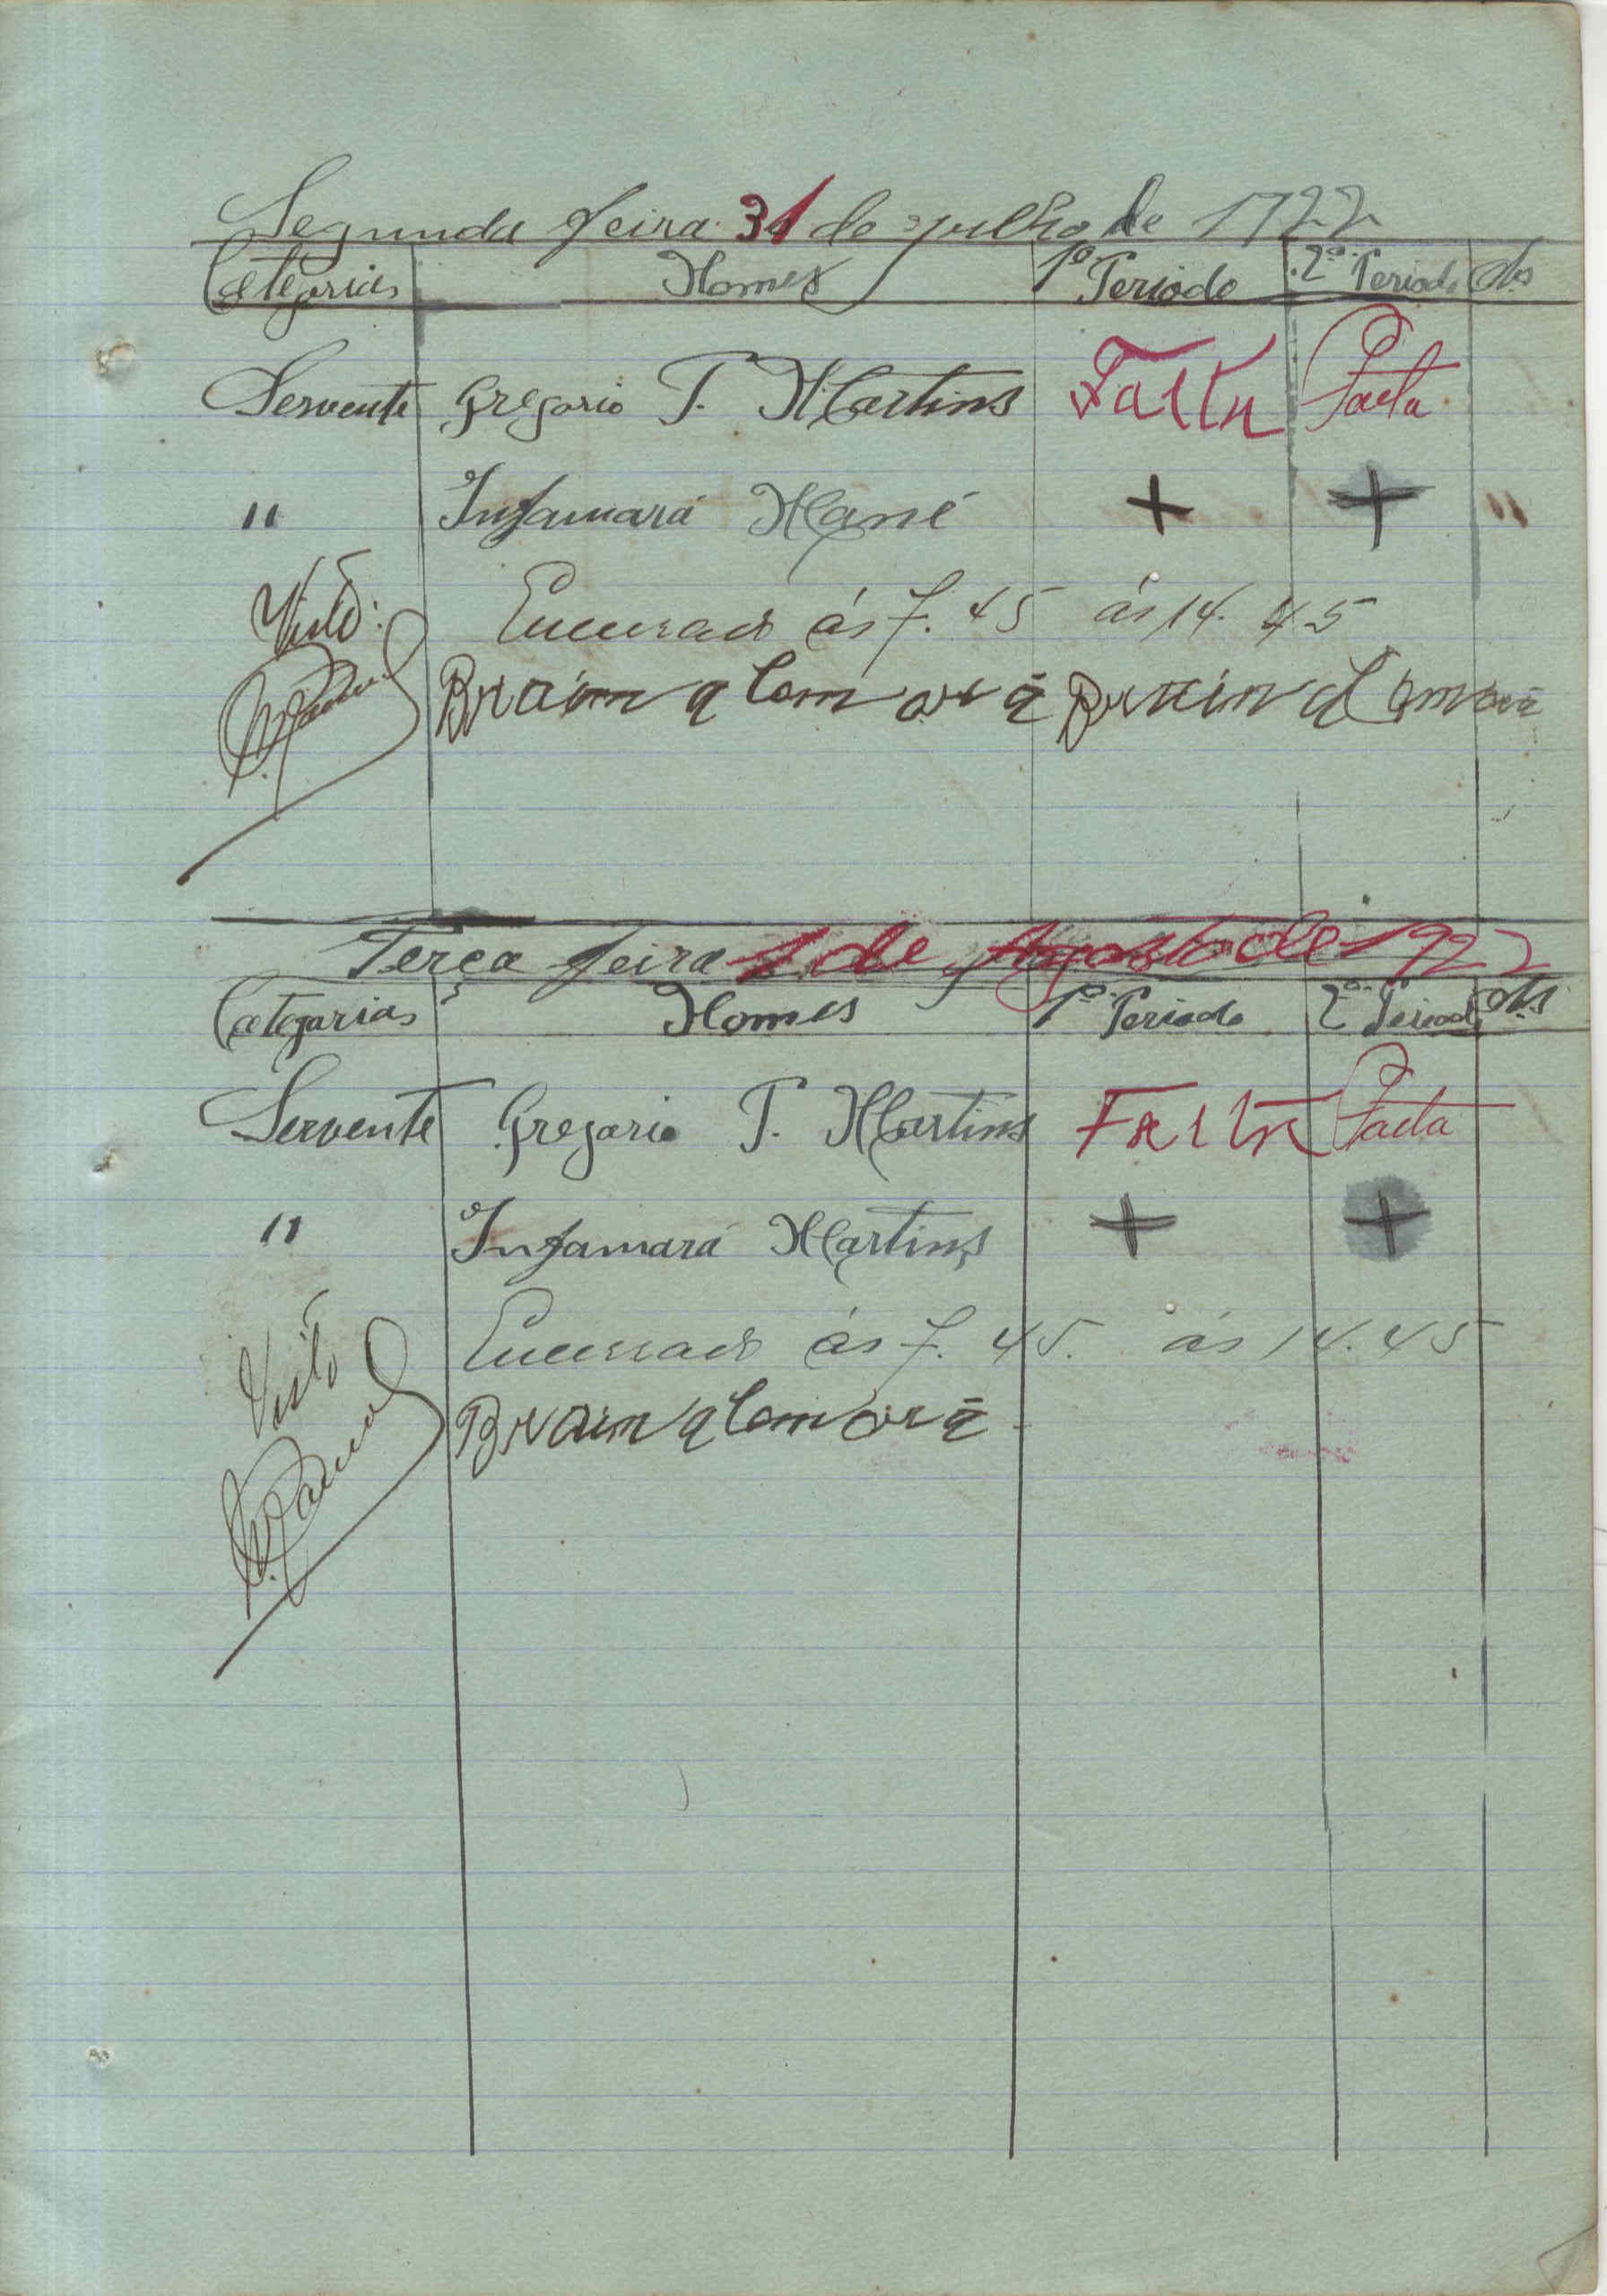 Segunda feira 31 de julho de 1922
Categorias Nomes 1º Periodo 2º Periodo Obs
Servente Gregorio T. Martins Falta Falta
" Infamará Mané + + "
Visto: Encerrado ás 7.45 ás 14.45
Terça feira 1 de Agosto de 1922
Categorias Nomes 1º Periodo 2º Period Obs
Servente Gregorio T. Martins Falta Falta
" Infamará Martins + +
Visto Encerrado ás 7.45. ás 14.45